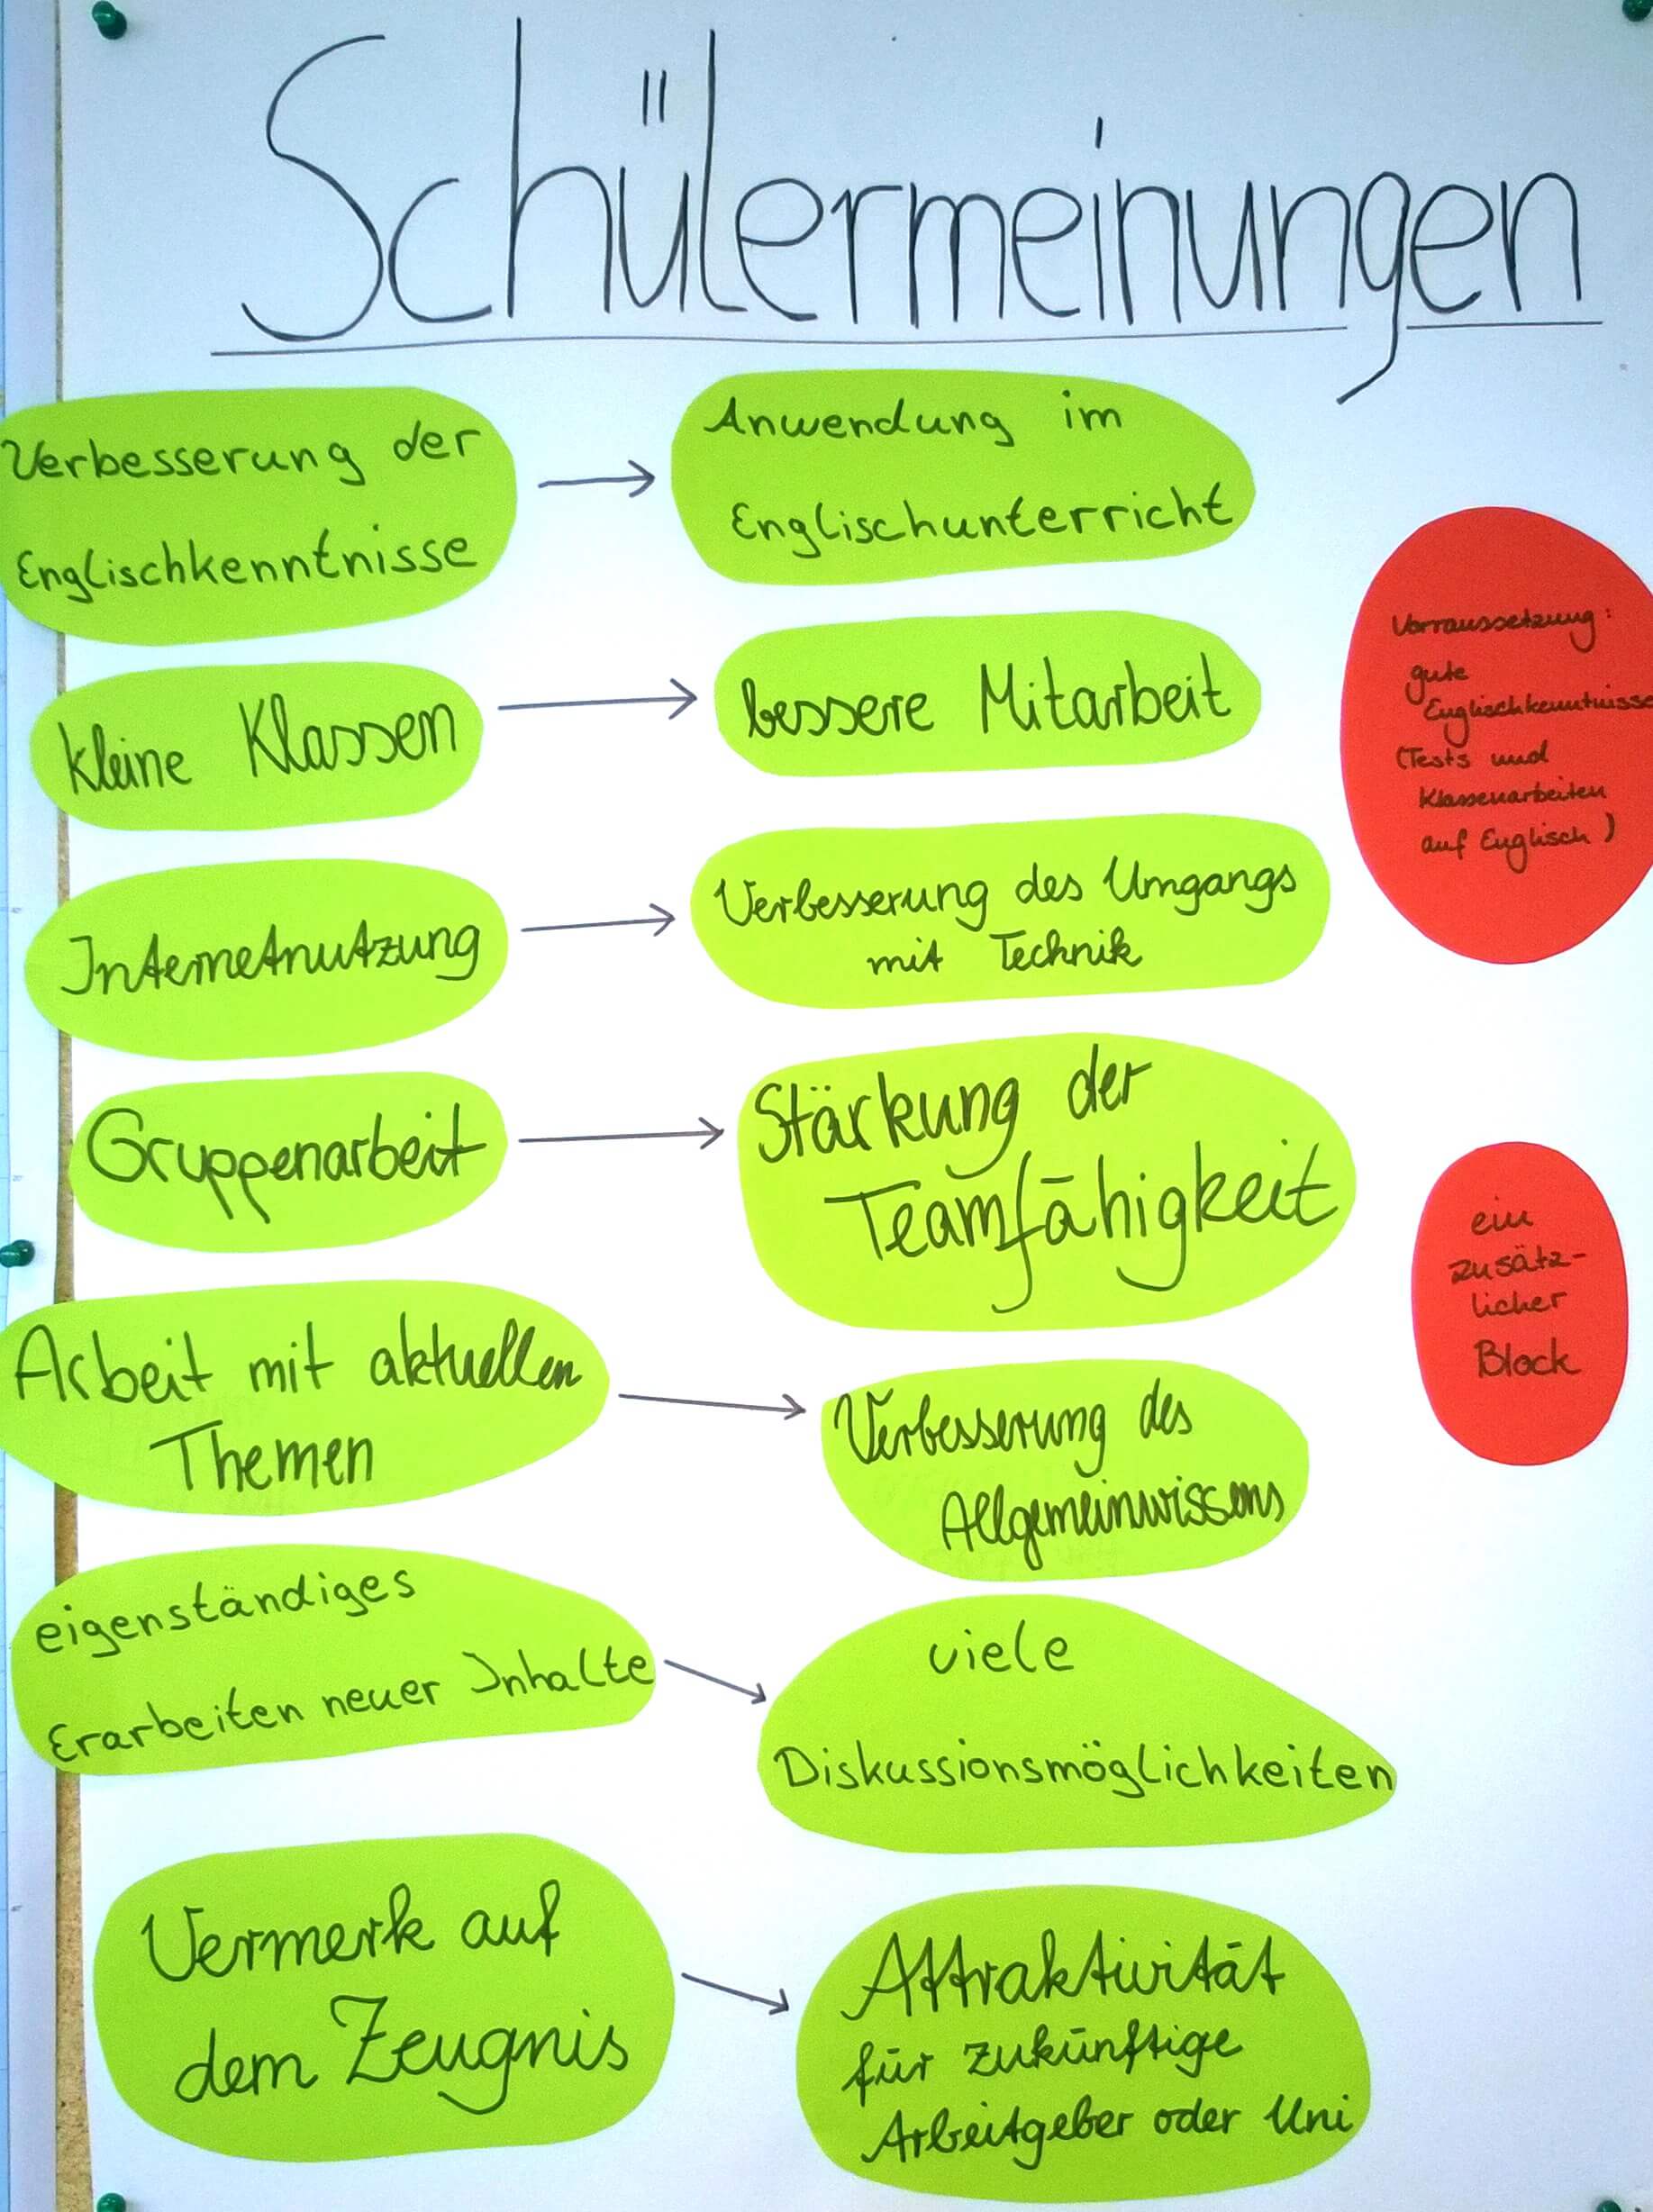 Schülermeinungen
Verbesserung der
Englischkenntnisse
Anwendung im
Englischunterricht
kleine Klassen
bessere Mitarbeit
Internetnutzung
Verbesserung des Umgangs
mit Technik
Gruppenarbeit
Stärkung der
Teamfähigkeit
Arbeit mit aktuellen
Themen
Verbesserung des
Allgemeinwissens
eigenständiges
Erarbeiten neuer Inhalte
viele
Diskussionsmöglichkeiten
Vermerk auf
dem Zeugnis
Attraktivität
für zukünftige
Arbeitgeber oder Uni
Vorraussetzung:
gute
Englischkenntnisse
(Tests und
Klassenarbeiten
auf Englisch)
ein
zusätz-
licher
Block